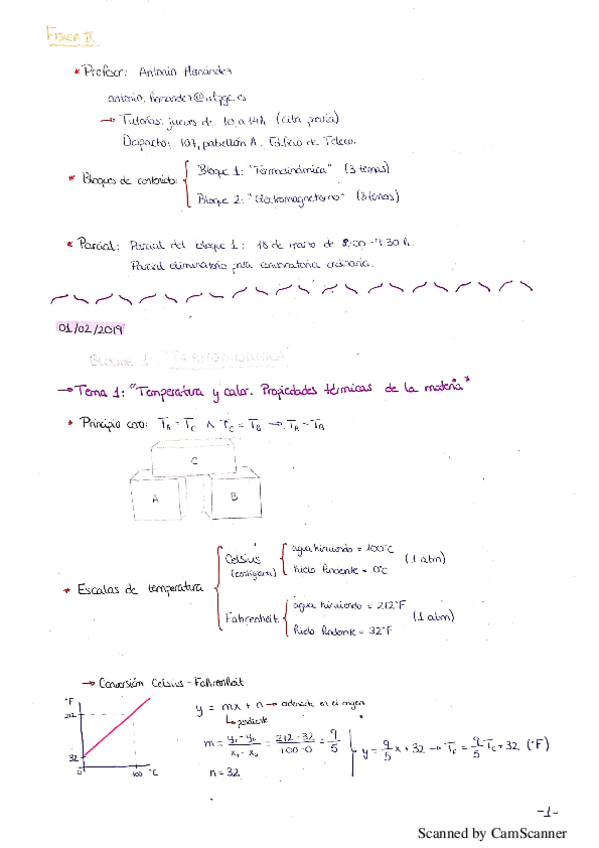 FÍSICA II
* Profesor: Antonio Hernández
antonio.hernandez@ulpgc.es
→ Tutorías: jueves de 10 a 14h (cita previa)
Despacho: 107, pabellón A. Edificio de Teleco.
* Bloques de contenido:
Bloque 1: "Termodinámica" (3 temas)
Bloque 2: "Electromagnetismo" (8 temas)
* Parcial: Parcial del bloque 1: 18 de marzo de 8:00 - 9:30 h.
Parcial eliminatorio para convocatoria ordinaria.
01/02/2019
BLOQUE 1: "TERMODINÁMICA"
→ Tema 1: "Temperatura y calor. Propiedades térmicas de la materia"
* Principio cero: T_A = T_C ∧ T_C = T_B → T_A = T_B
C
A B
* Escalas de temperatura
Celsius (centígrada)
agua hirviendo = 100°C
Hielo fundente = 0°C
(1 atm)
Fahrenheit
agua hirviendo = 212°F
Hielo fundente = 32°F
(1 atm)
→ Conversión Celsius - Fahrenheit
°F
212
32
0 100 °C
y = mx + n → ordenada en el origen
↳ pendiente
m = (y₁ - y₀)/(x₁ - x₀) = (212 - 32)/(100 - 0) = 9/5
n = 32
y = 9/5 x + 32 → T_F = 9/5 T_C + 32 (°F)
-1-
Scanned by CamScanner